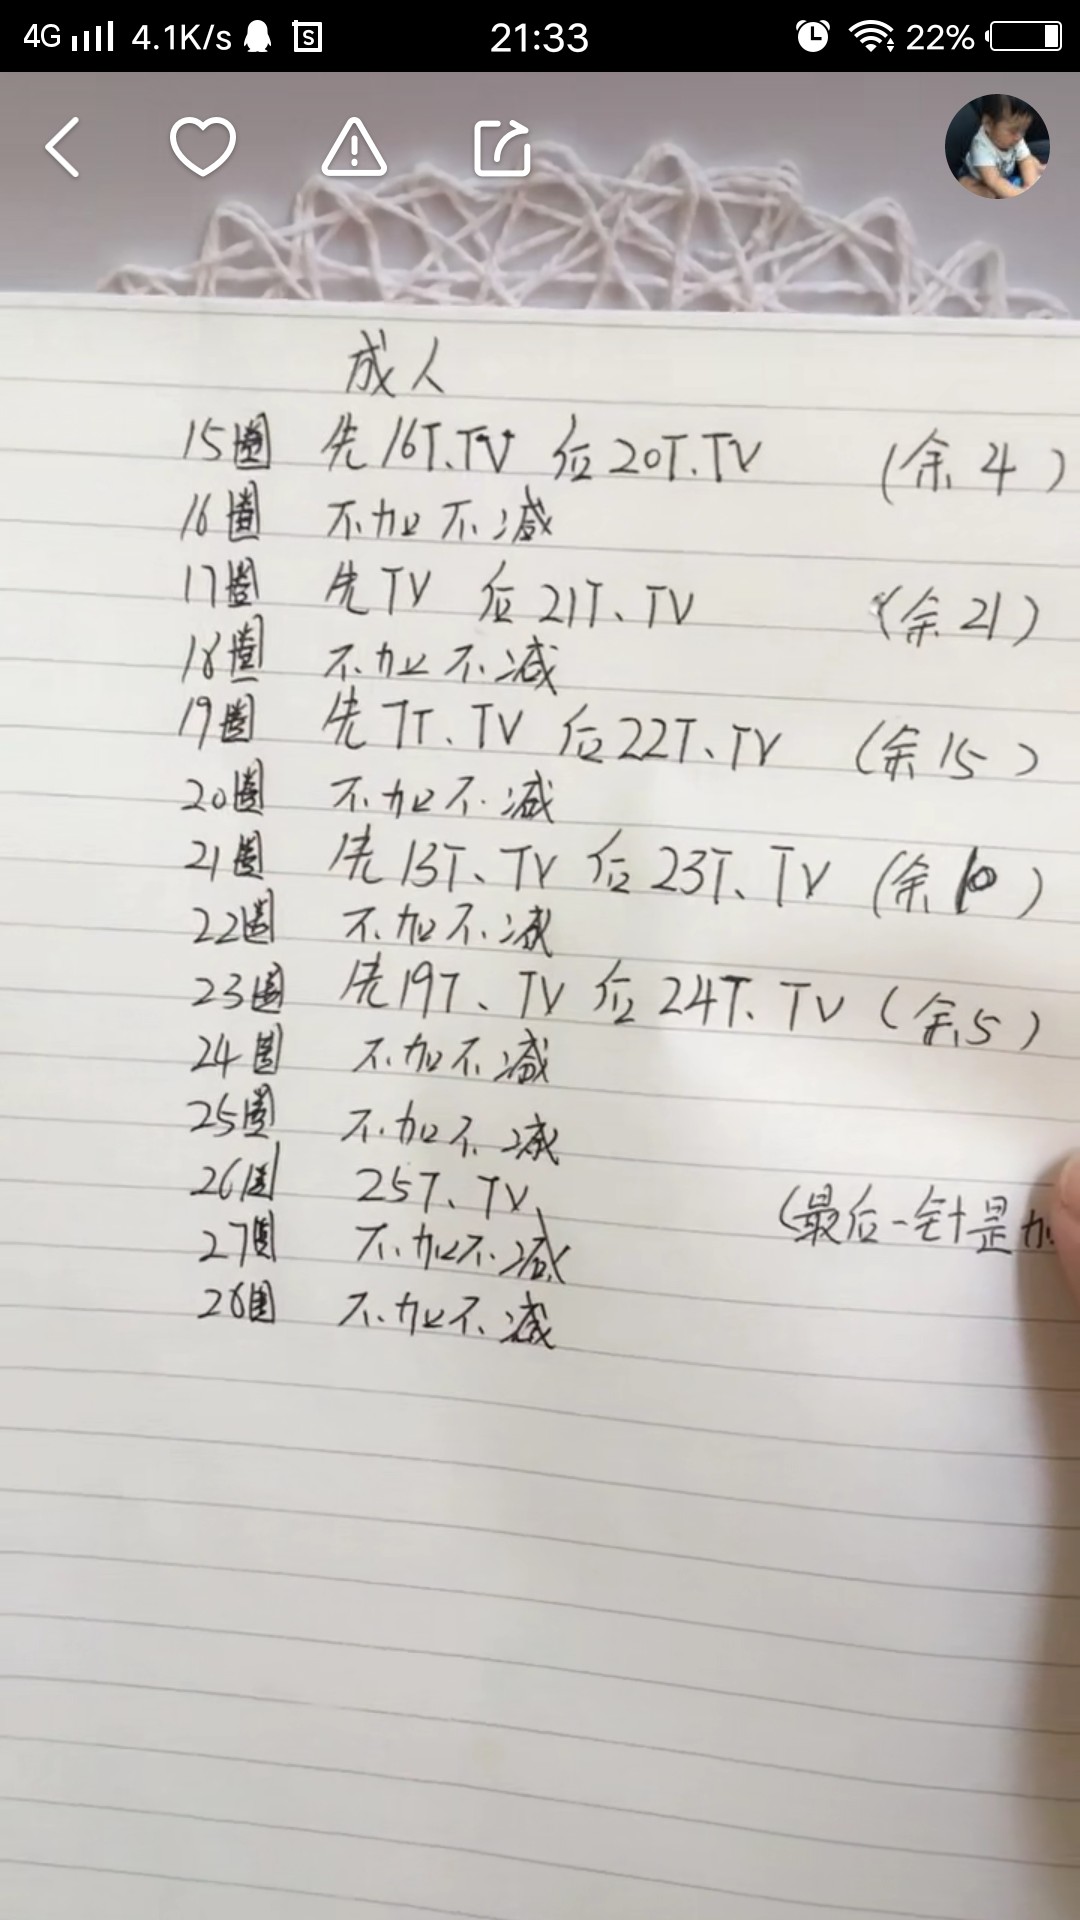 4G 4.1K/s S 21:33 22%
成人
15圈 先16T、TV 后20T、TV (余4)
16圈 不加不减
17圈 先TV 后21T、TV (余21)
18圈 不加不减
19圈 先7T、TV 后22T、TV (余15)
20圈 不加不减
21圈 先13T、TV 后23T、TV (余10)
22圈 不加不减
23圈 先19T、TV 后24T、TV (余5)
24圈 不加不减
25圈 不加不减
26圈 25T、TV、 (最后一针是加
27圈 不加不减
28圈 不加不减